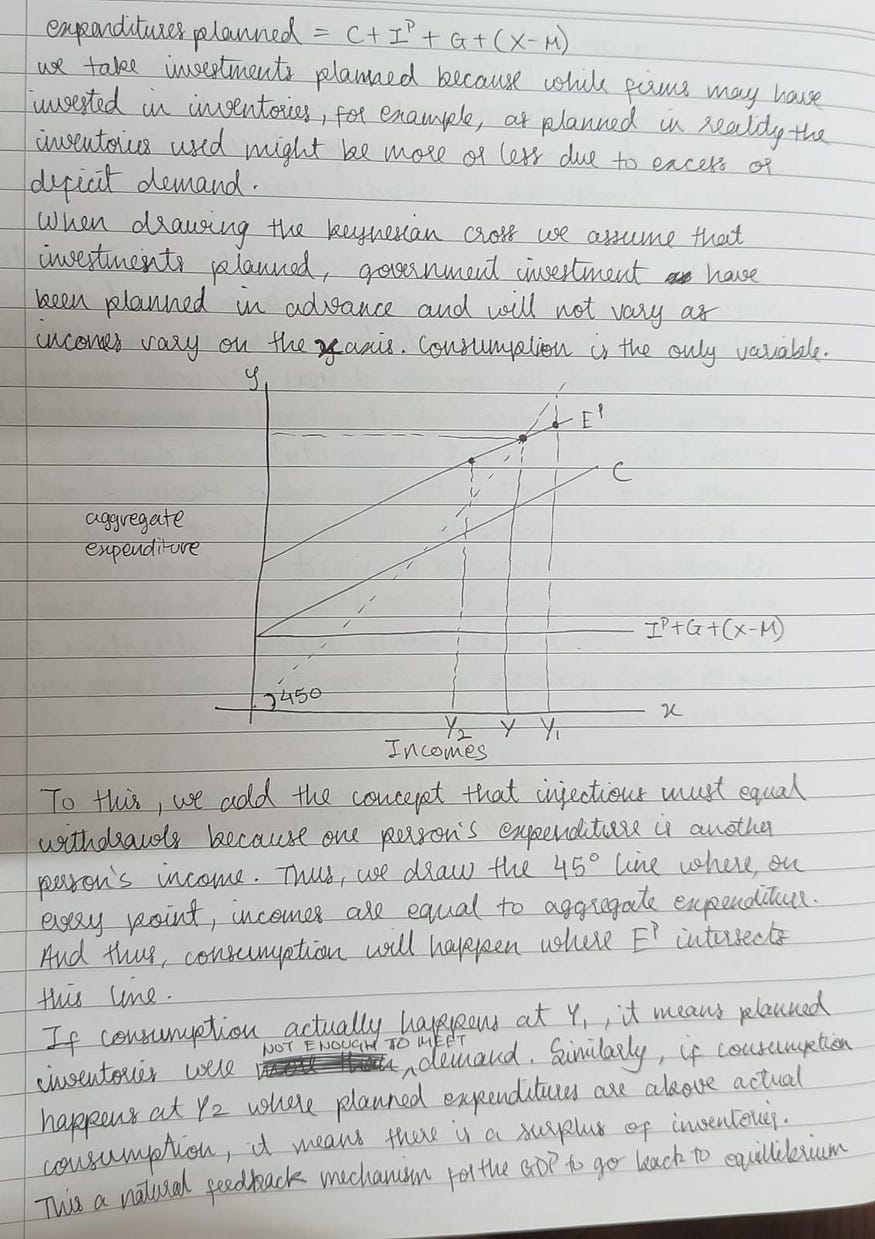 expenditures planned = C + Iᴾ + G + (X-M)
we take investments planned because while firms may have
invested in inventories, for example, as planned in reality the
inventories used might be more or less due to excess or
deficit demand.
When drawing the keynesian cross we assume that
investments planned, government investment have
been planned in advance and will not vary as
incomes vary on the x axis. Consumption is the only variable.
y
Eᴾ
C
aggregate
expenditure
Iᴾ+G+(X-M)
450
x
Y₂ Y Y₁
Incomes
To this, we add the concept that injections must equal
withdrawls because one person's expenditure is another
person's income. Thus, we draw the 45° line where, on
every point, incomes are equal to aggregate expenditure.
And thus, consumption will happen where Eᴾ intersects
this line.
If consumption actually happens at Y₁, it means planned
NOT ENOUGH TO MEET
inventories were demand. Similarly, if consumption
happens at Y₂ where planned expenditures are above actual
consumption, it means there is a surplus of inventories.
This a natural feedback mechanism for the GDP to go back to equillibrium